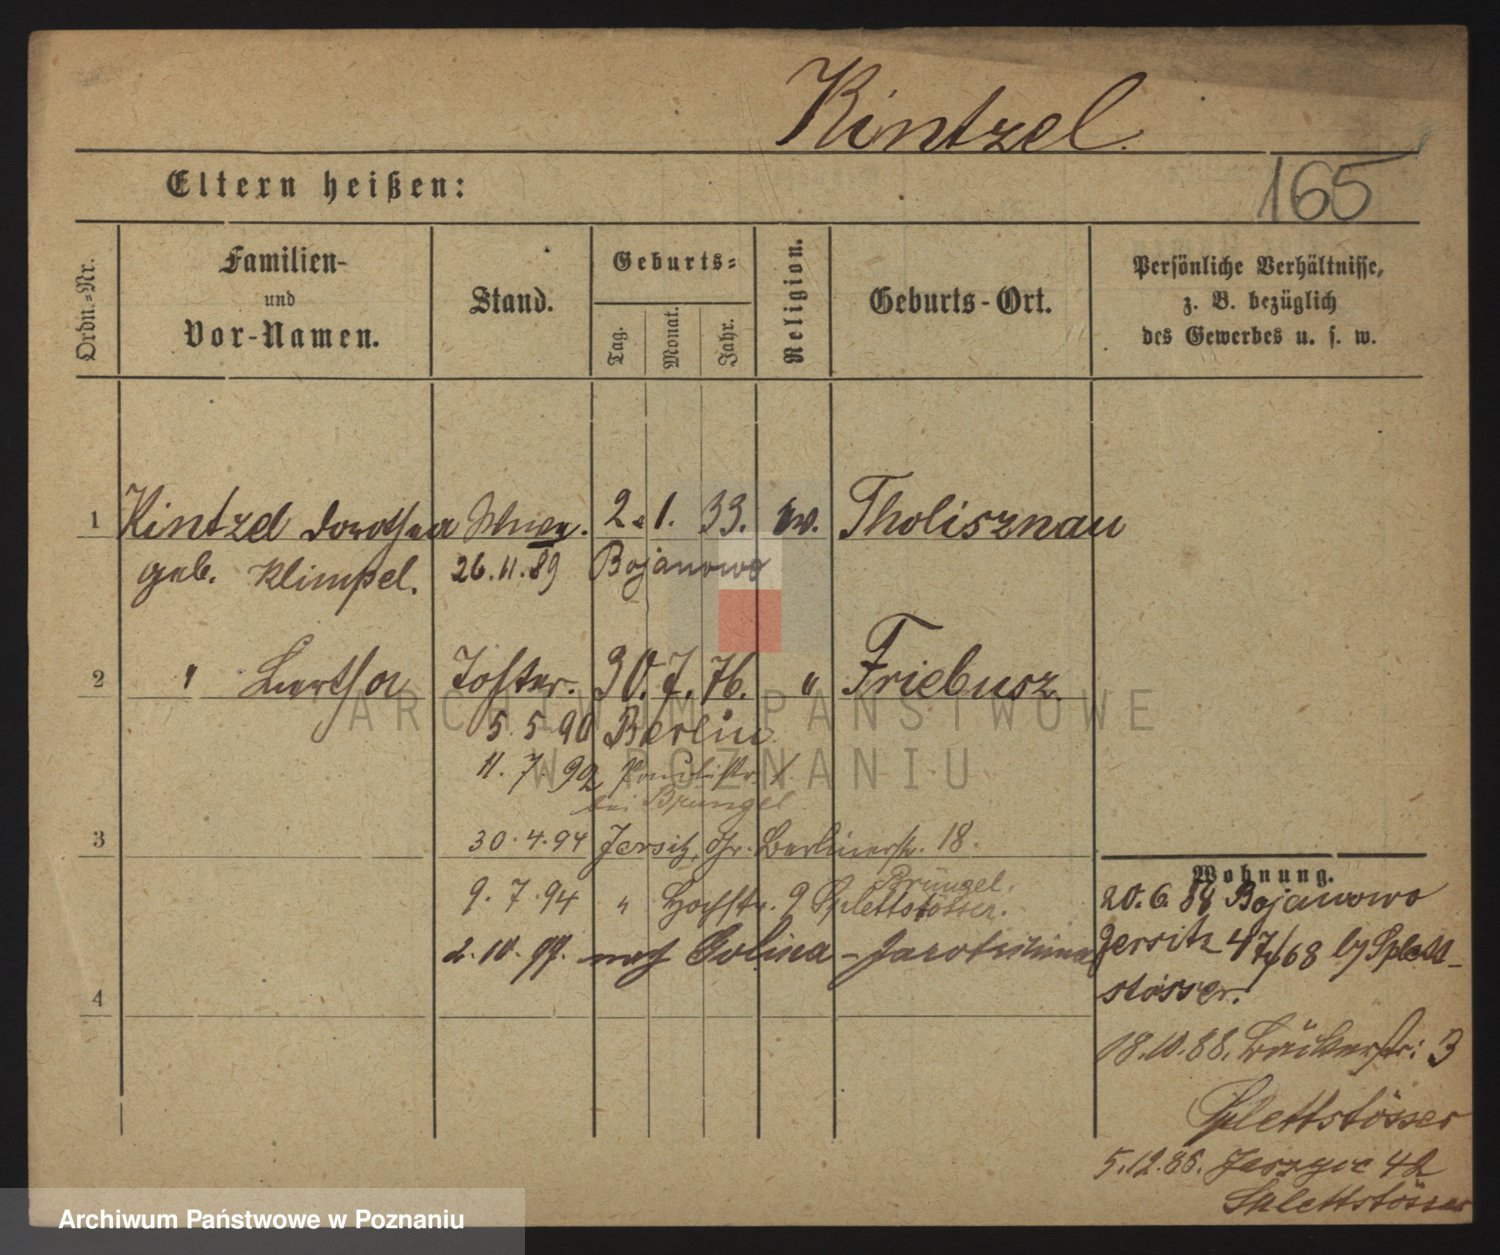 Kintzel.
Eltern heißen:
165
Ordn.=Nr.
Familien-
und
Vor-Namen.
Stand.
Geburts=
Tag.
Monat.
Jahr.
Religion.
Geburts-Ort.
Persönliche Verhältnisse,
z. B. bezüglich
des Gewerbes u. s. w.
1 Kintzel Dorothea 2. 1. 33. Ev. Tholisznau
geb. Klimpel. 26.11.89 Bojanowo
2 " Bertha Tochter. 30. 7. 76. " Friebusz
5. 5. 90 Berlin
11. 7. 92
bei Brüngel
3 30.4.94 Jersitz, Gr. Berlinerstr. 18.
Brüngel.
9. 7. 94 " Hochstr. 9 Splettstösser.
2. 10. 99. nach
4
Wohnung.
20. 6. 88 Bojanowo
Jersitz 47/68 b/ Splett-
stösser.
18.10.88. Bäckerstr: 3
Splettstösser
5.12.88. 42
Splettstösser
ARCHIWUM PAŃSTWOWE
W POZNANIU
Archiwum Państwowe w Poznaniu